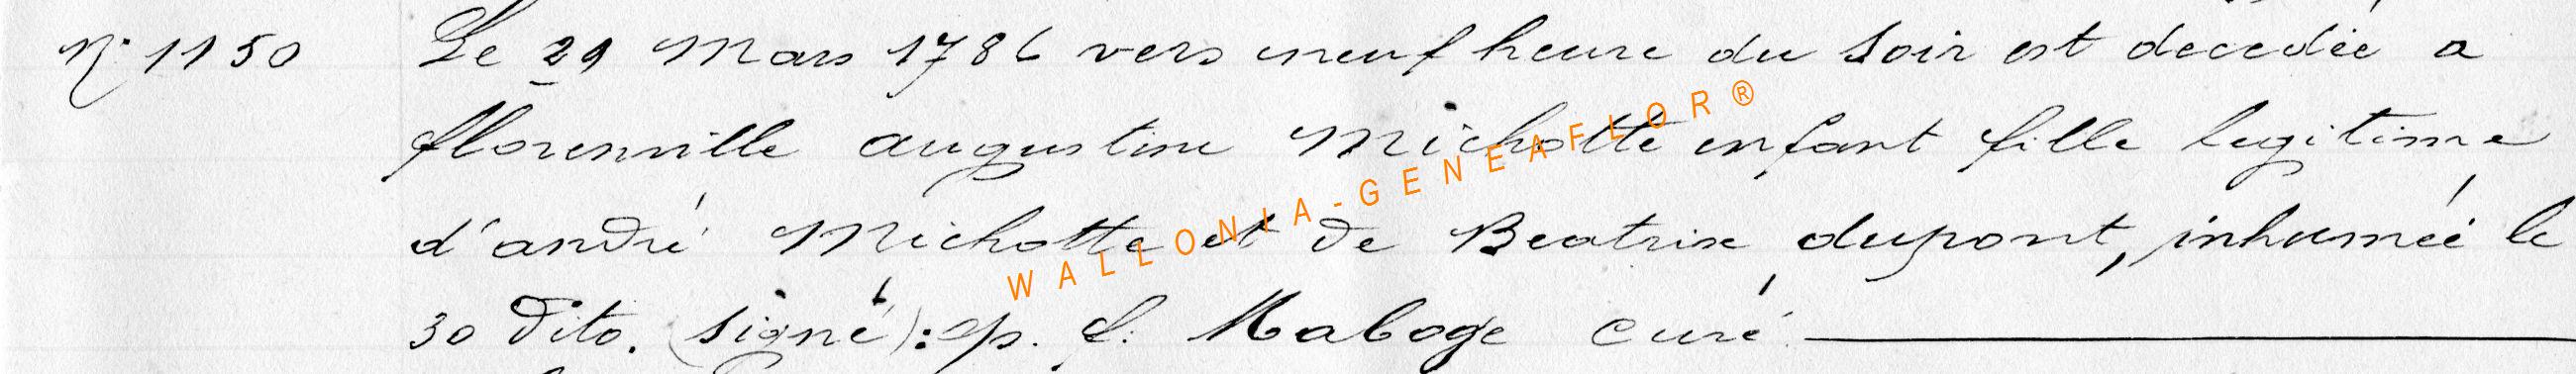 N° 1150 Le 29 Mars 1786 vers neuf heure du Soir est decedée a
florenville augustine Michotte enfant fille legitime
d'andré Michotte et de Beatrix dupont, inhumée le
30 dito. (signé): p. f. Maboge Curé.
WALLONIA-GENEAFLOR®